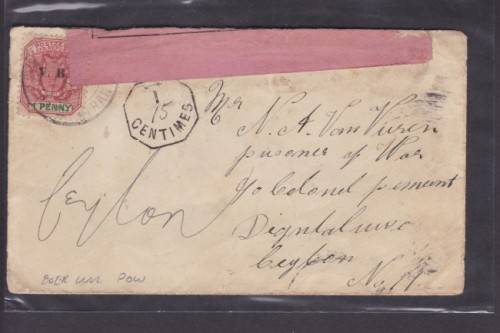 V. R.
1 PENNY
T
15
CENTIMES
Mr
N. A. Van Vuren
prisoner of War
C/o Colonel
Ceylon
Ceylon
BOER WAR POW